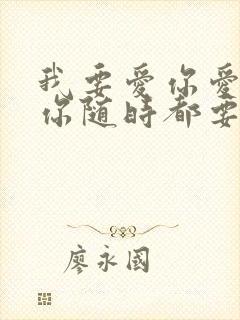 我要愛你愛
你隨時都要
廖永國